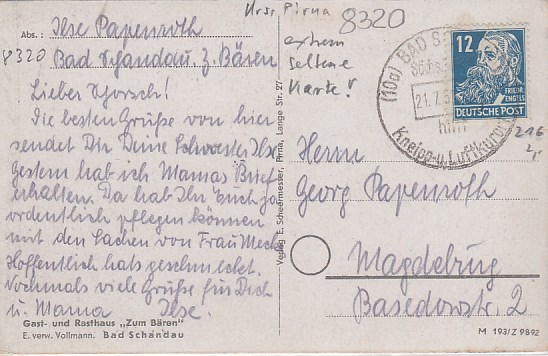 Abs.: Ilse Papenroth
8320 Bad Schandau. z. Bären
Lieber Schorsch!
Die besten Grüße von hier
sendet Dir Deine Schwester Ilse
gestern hab ich Mamas Brief
erhalten. Da hab Ihr Euch ja
ordentlich pflegen können
mit den Sachen von Frau Meck
Hoffentlich hats geschmeckt.
Nochmals viele Grüße für Dich
u. Mama Ilse.
Gast- und Rasthaus "Zum Bären"
E. verw. Vollmann. Bad Schandau
Verlag E. Scheermesser, Pirna, Lange Str. 27
Krs. Pirna
8320
extrem
seltene
Karte!
(10a) BAD S
21.7.5
Kneipp-u.Luftkuro
12
FRIEDR.
ENGELS
DEUTSCHE POST
216
Herrn
Georg Papenroth
Magdeburg
Basedowstr. 2
M 193/Z 9892